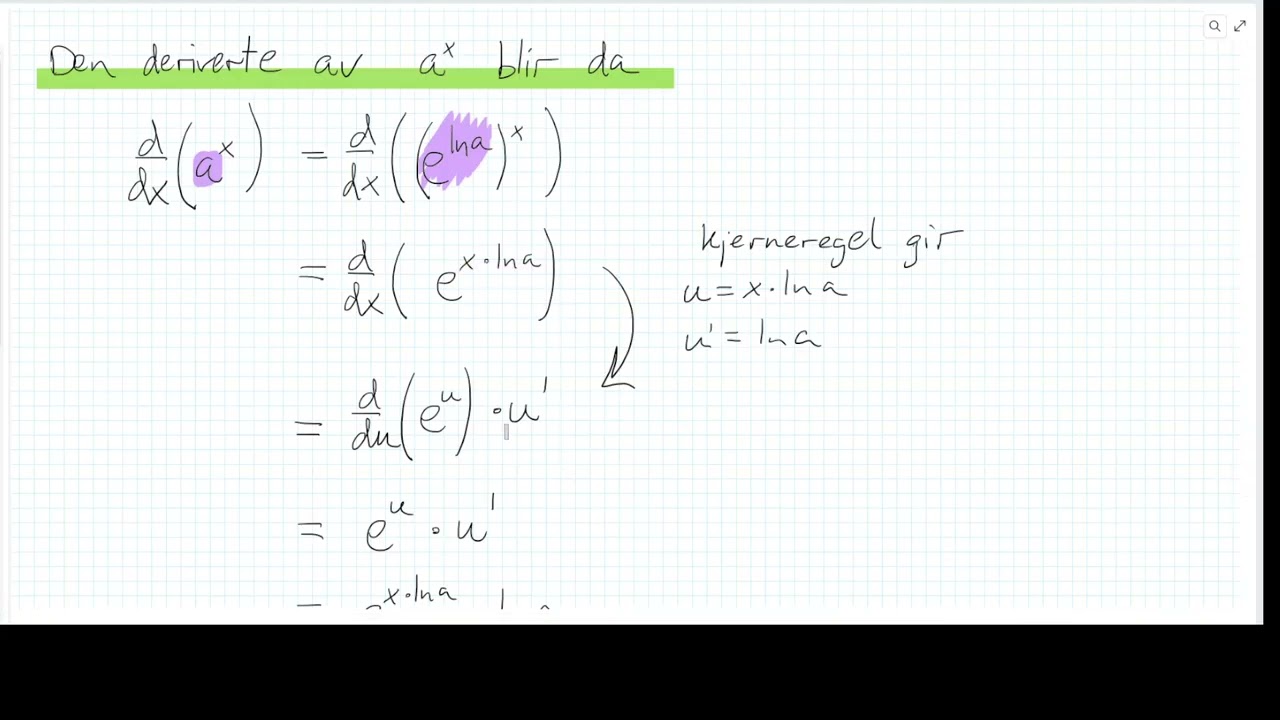 Den deriverte av a^x blir da
d/dx (a^x) = d/dx ((e^{ln a})^x)
= d/dx (e^{x·ln a})
kjerneregel gir
u = x·ln a
u' = ln a
= d/du (e^u) · u'
= e^u · u'
= e^{x·ln a}